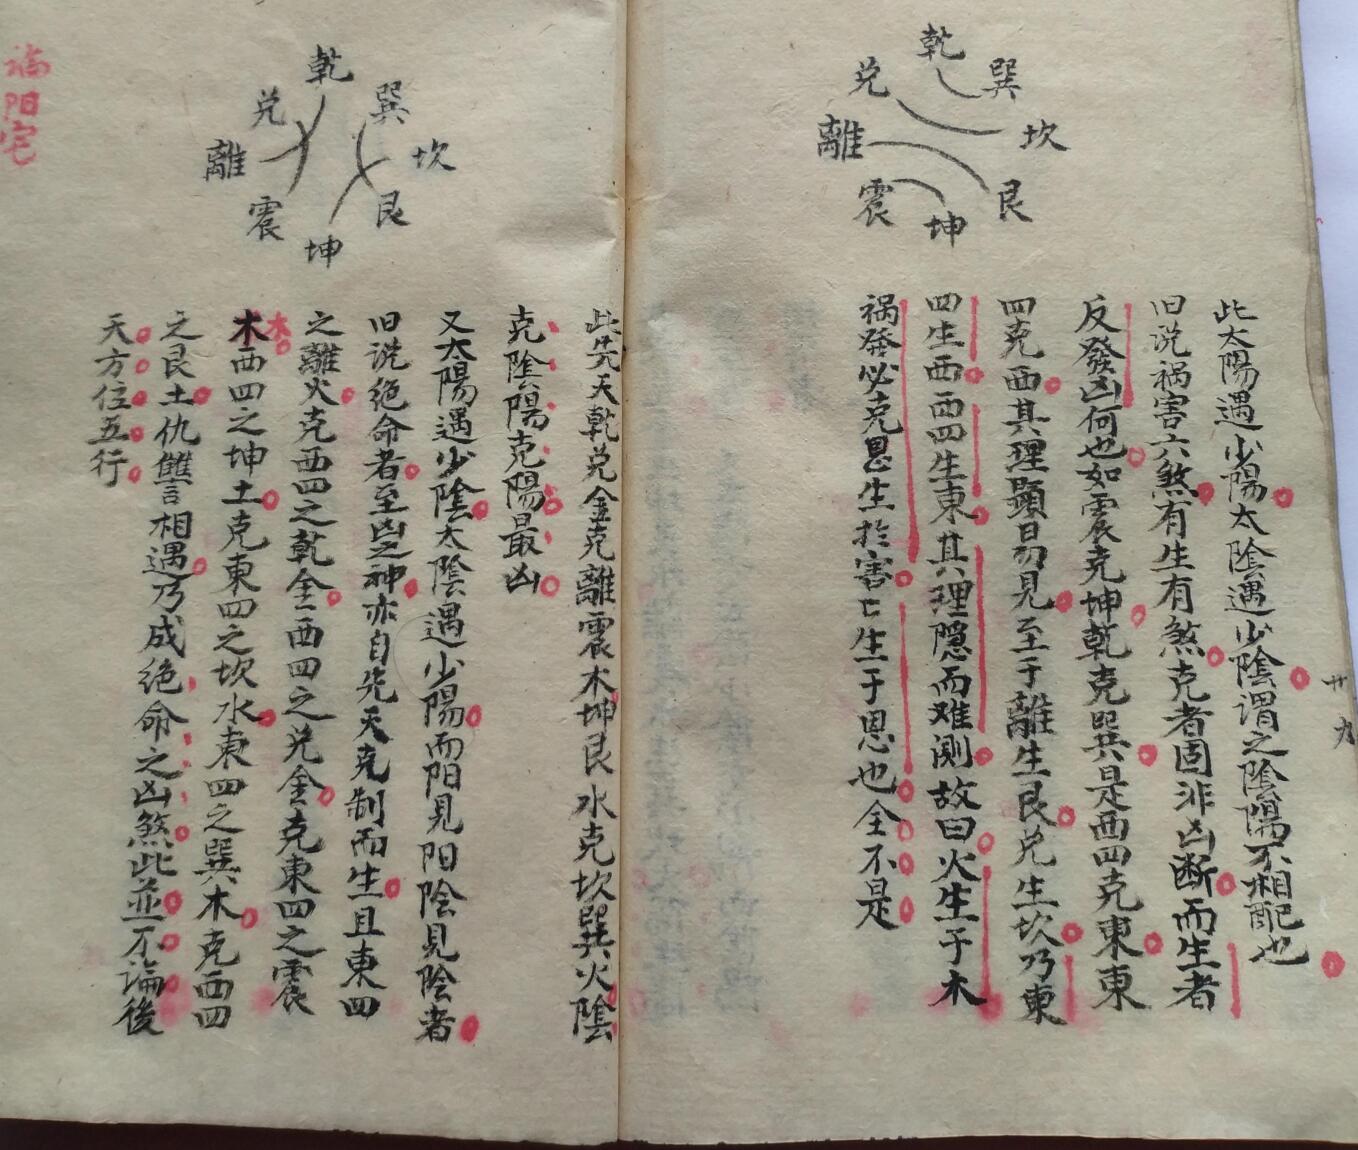 乾
兑 巽
離 坎
震 艮
坤
此太陽遇少陽太陰遇少陰謂之陰陽不相配也
旧说祸害六煞有生有煞克者固非凶断而生者
反發凶何也如震克坤乾克巽是西四克東東
四克西其理顯易見至于離生艮兑生坎乃東
四生西西四生東其理隠而难测故曰火生于木
祸發必克恩生於害亡生于恩也全不是
廿九
乾
兑 巽
離 坎
震 艮
坤
此先天乾兑金克離震木坤艮水克坎巽火陰
克陰陽克陽最凶
又太陽遇少陰太陰遇少陽而阳見阳陰見陰者
旧说绝命者至凶之神亦自先天克制而生且東四
之離火克西四之乾金西四之兑金克東四之震
木西四之坤土克東四之坎水東四之巽木克西四
木
之艮土仇讐相遇乃成绝命之凶煞此並不論後
天方位五行
論阳宅